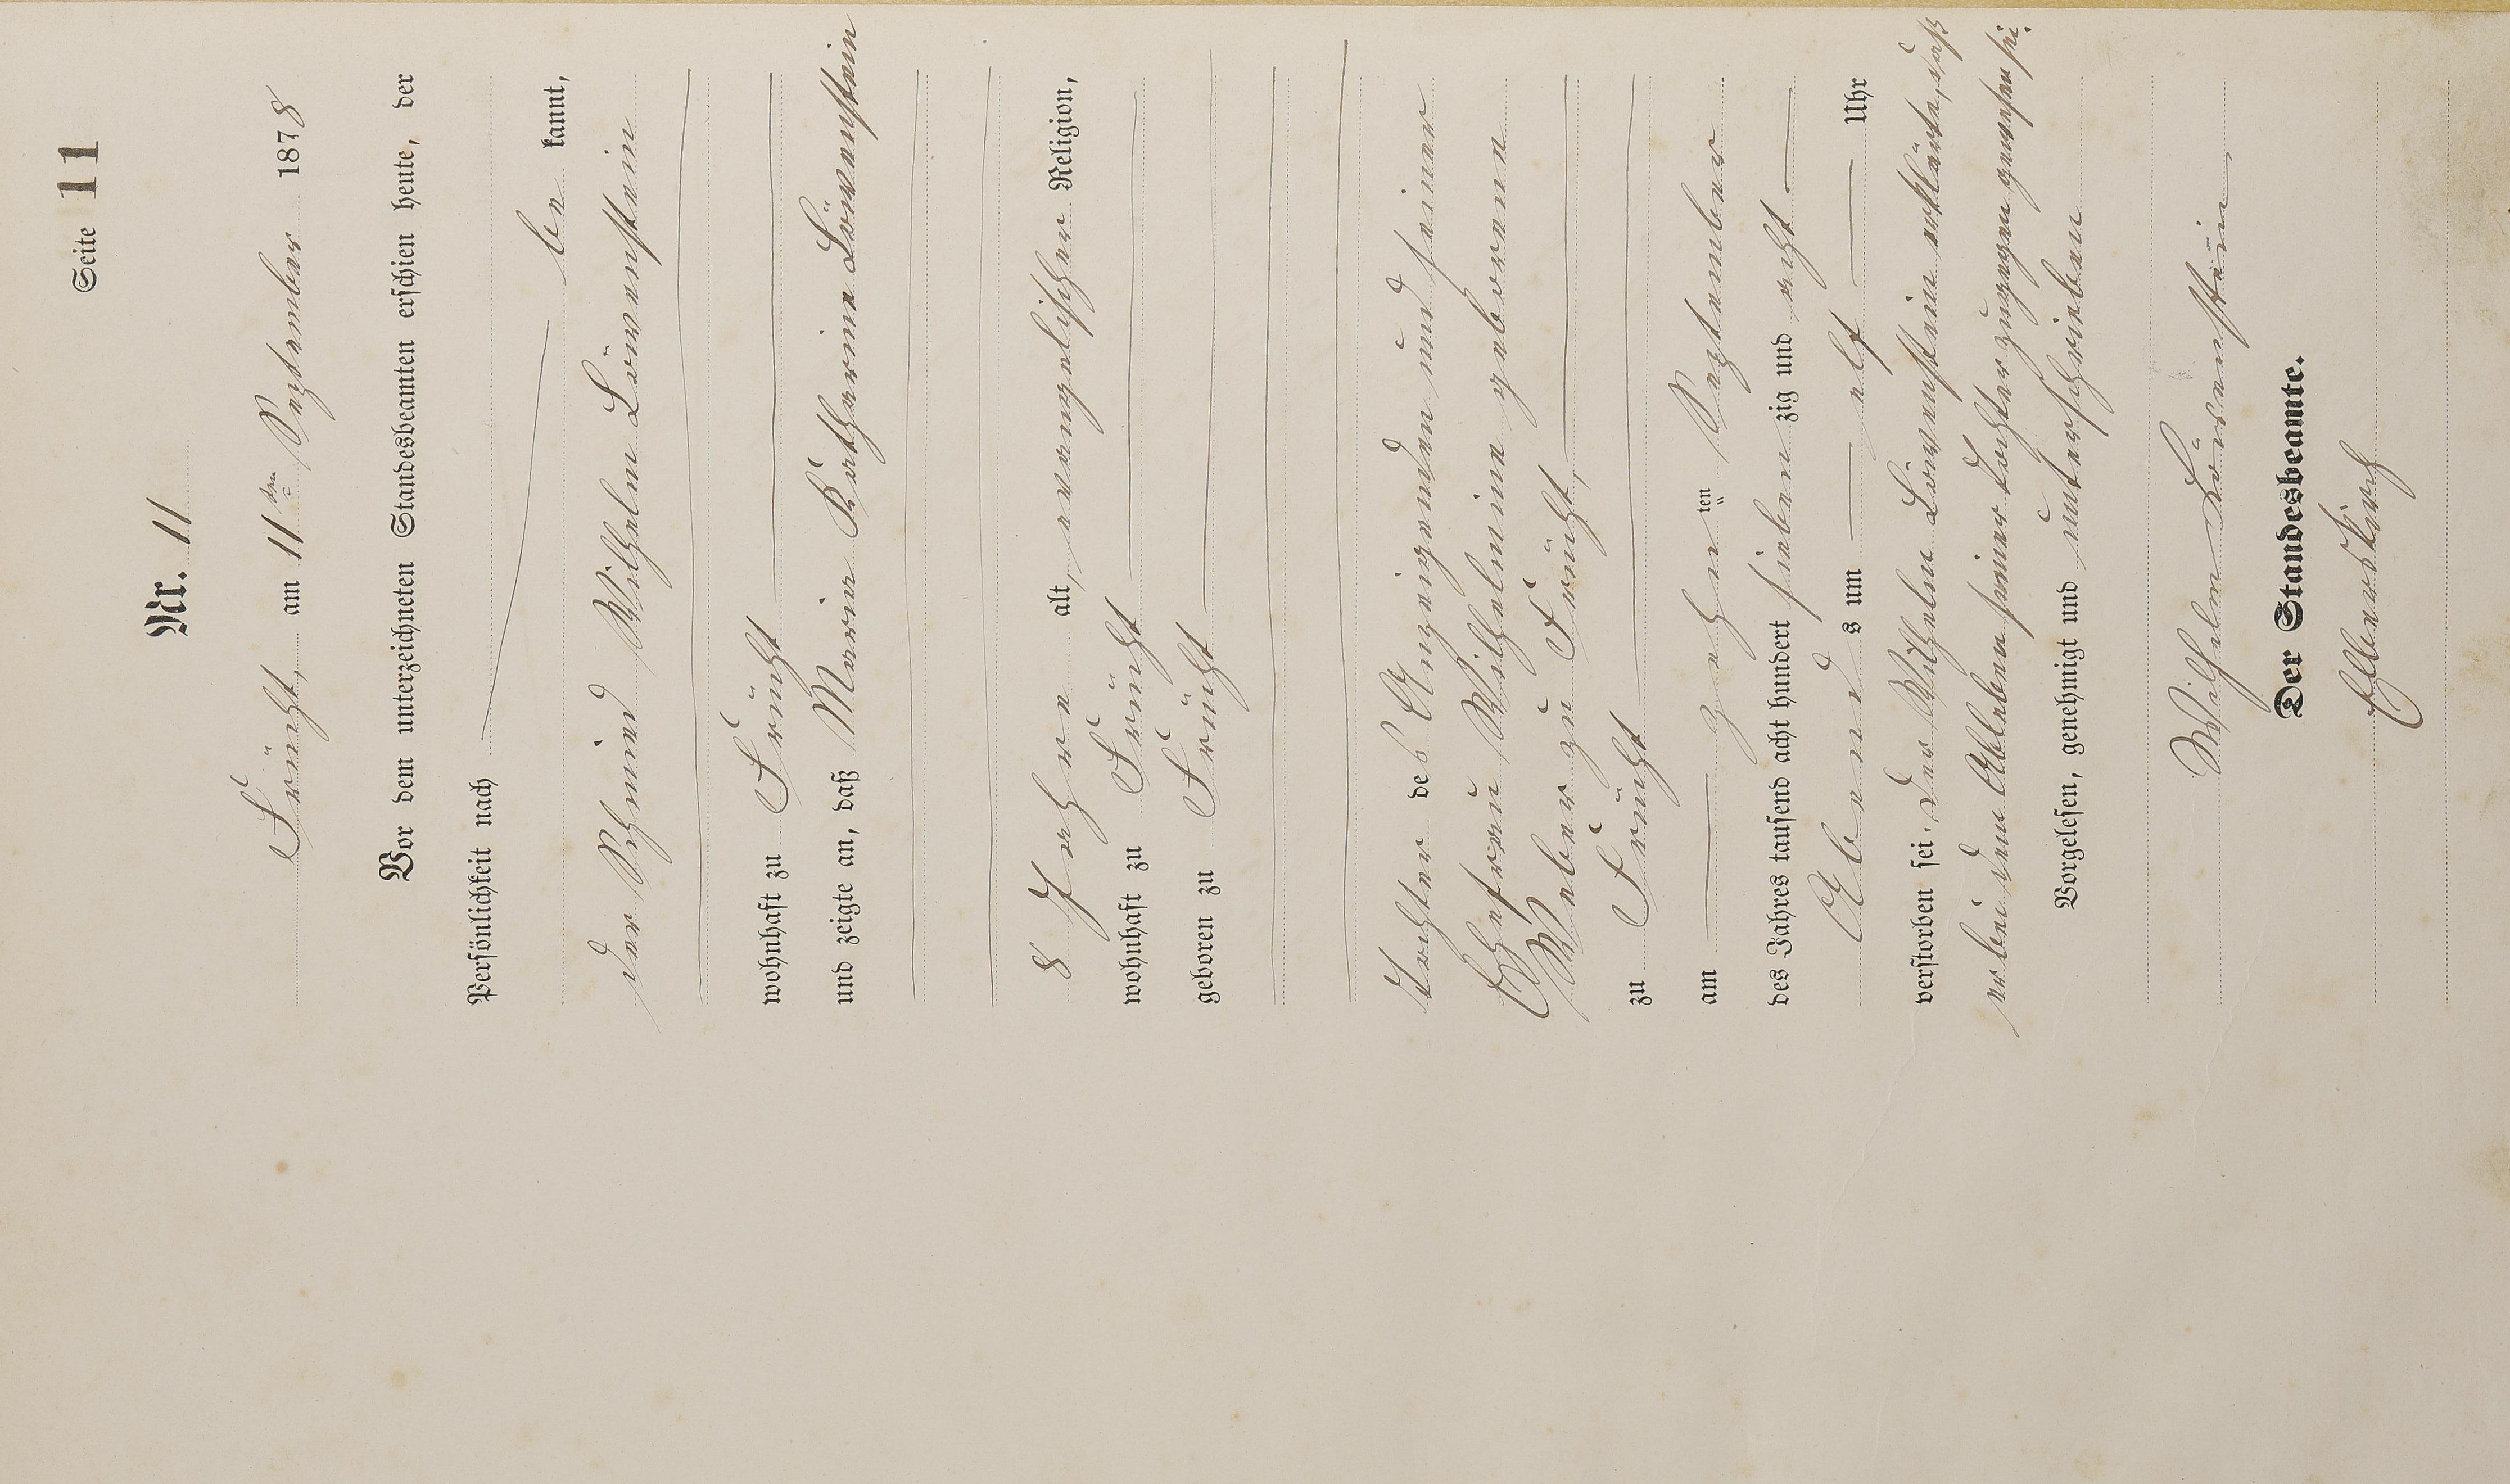 Seite 11
Nr. 11
Frücht, am 11ten September 1878
Vor dem unterzeichneten Standesbeamten erschien heute, der
Persönlichkeit nach
be kannt,
der Schmied Wilhelm Löwenstein
wohnhaft zu Frücht
und zeigte an, daß Maria Katharina Löwenstein
8 Jahre alt, evangelischer Religion,
wohnhaft zu Frücht
geboren zu Frücht
Tochter des Anzeigenden und seiner
Ehefrau Wilhelmine geborenen
Weber zu Frücht,
zu Frücht
am zehn ten September
des Jahres tausend acht hundert sieben zig und acht
Abends um elf Uhr
verstorben sei. Der Wilhelm Löwenstein erklärte, daß
er bei dem Ableben seiner Tochter zugegen gewesen sei.
Vorgelesen, genehmigt und unterschrieben
Wilhelm Löwenstein
Der Standesbeamte.